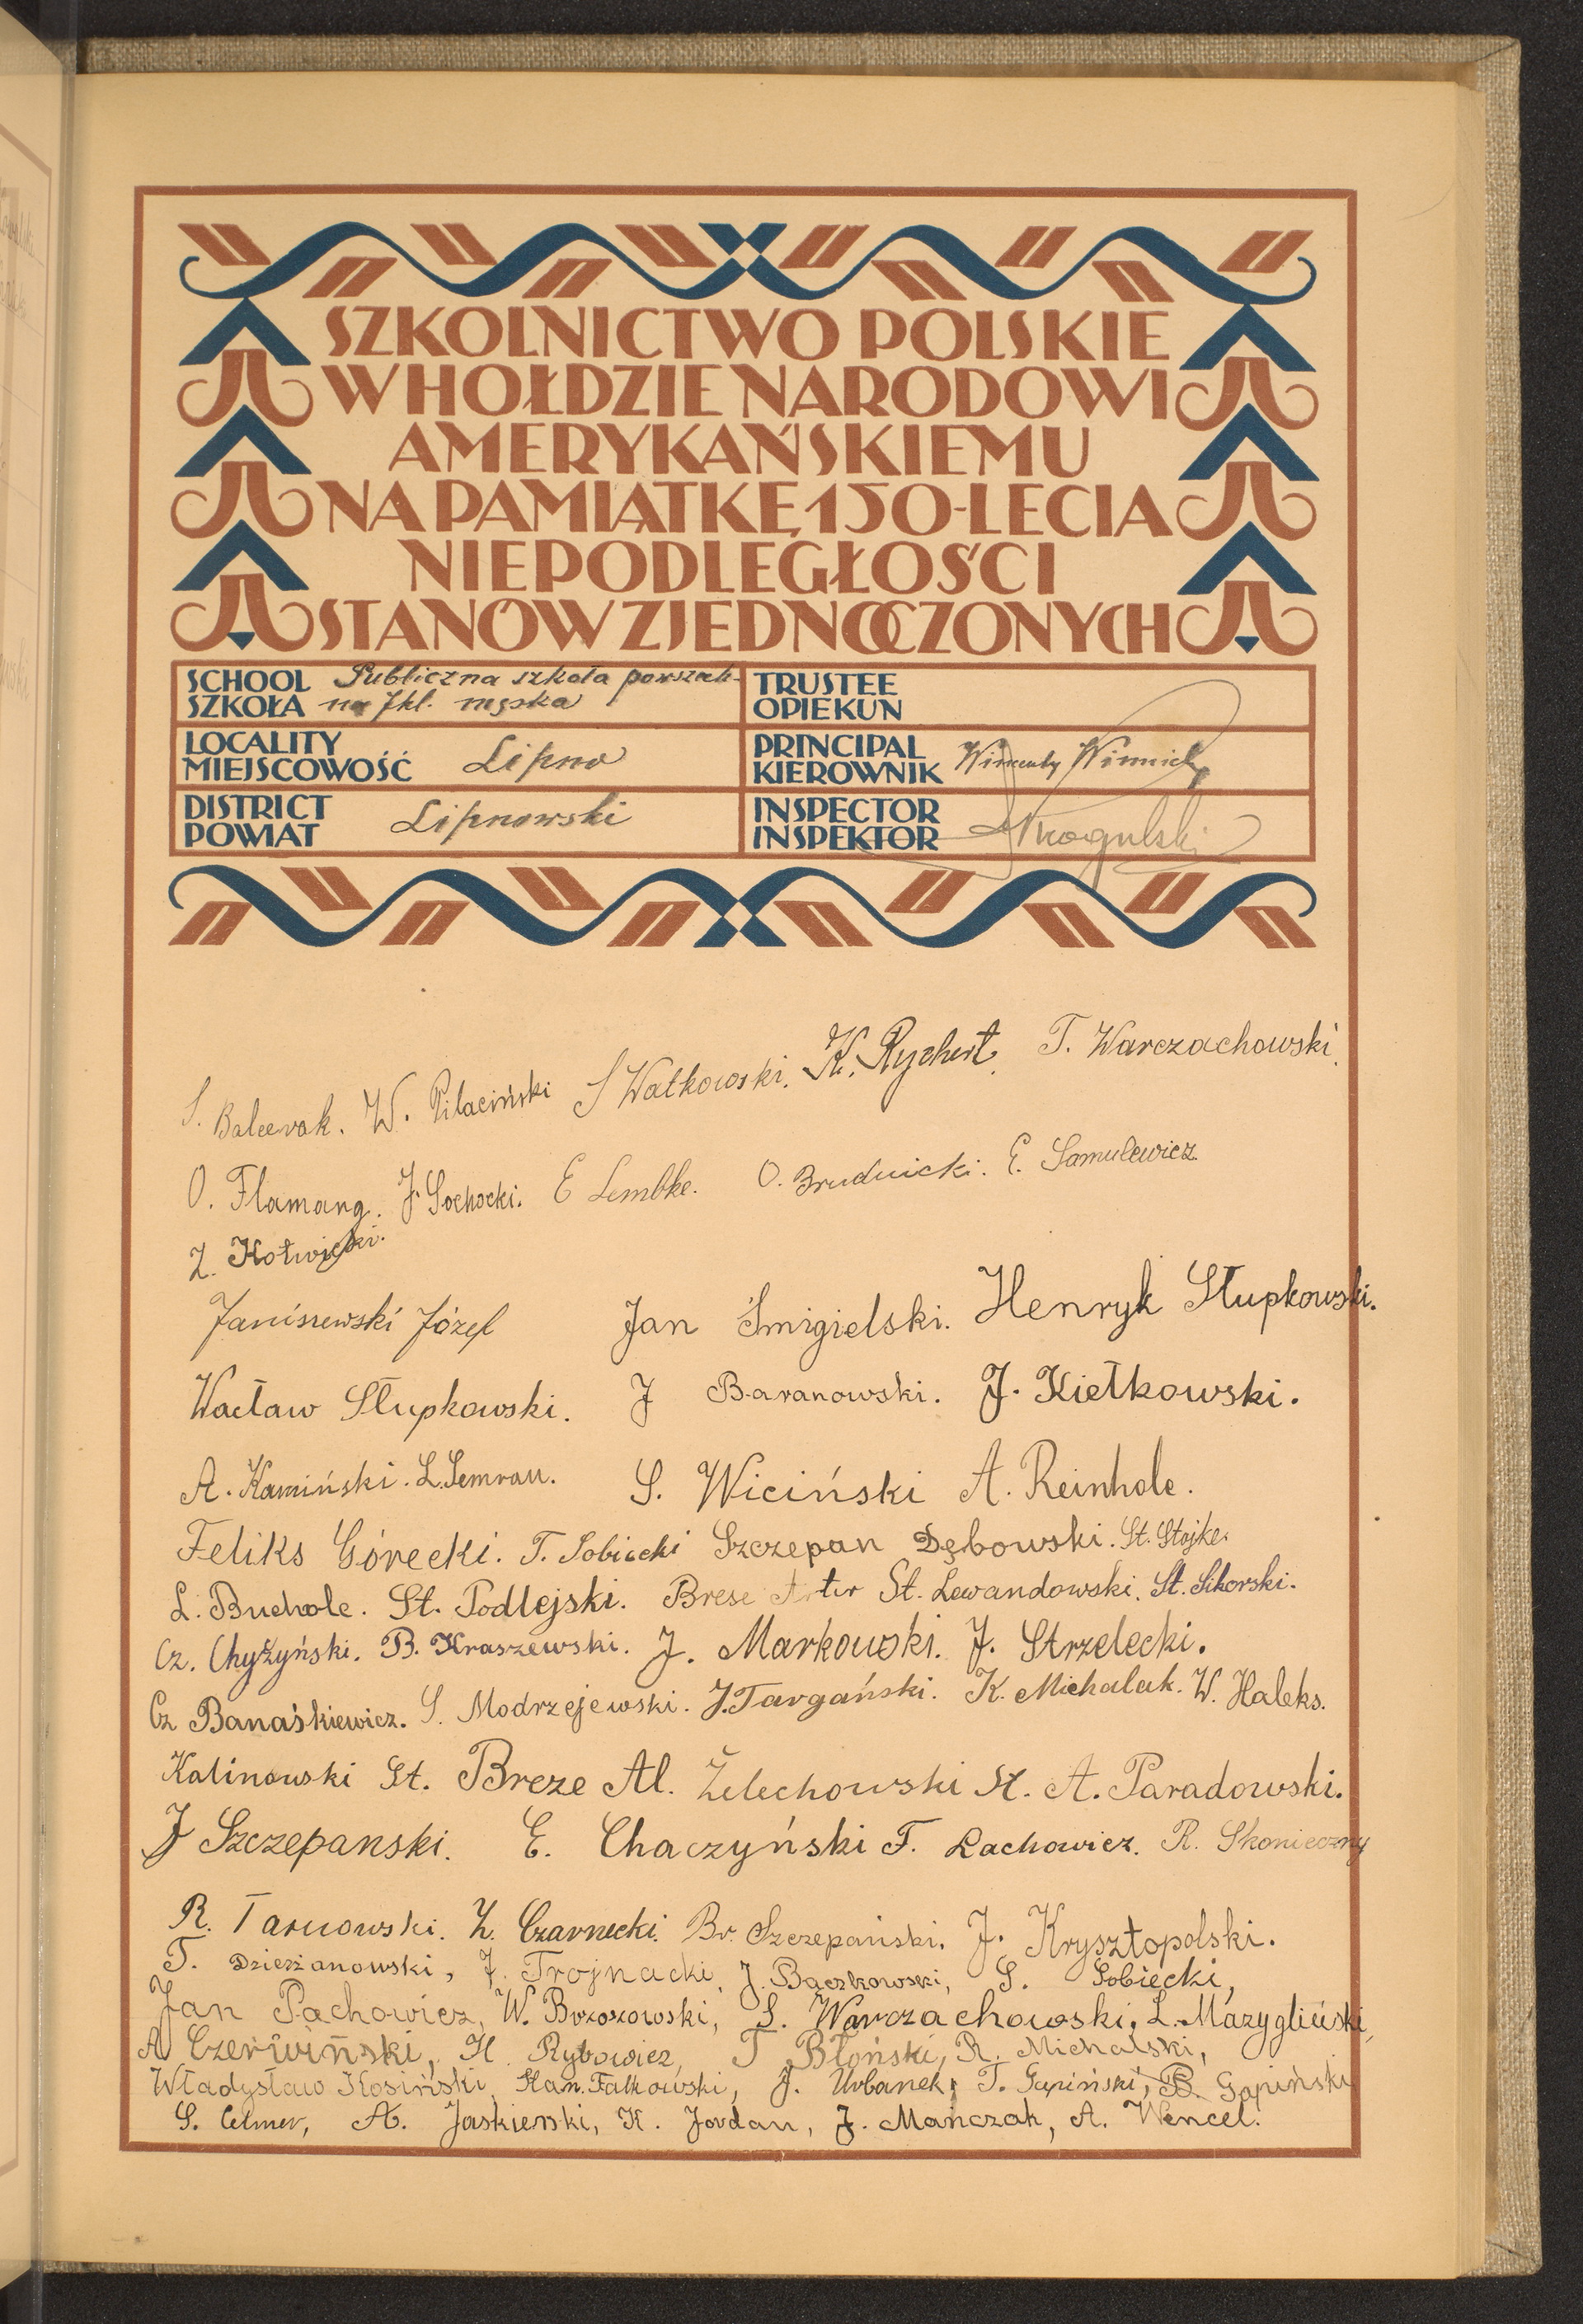 SZKOLNICTWO POLSKIE
W HOŁDZIE NARODOWI
AMERYKAŃSKIEMU
NA PAMIĄTKĘ 150-LECIA
NIEPODLEGŁOŚCI
STANÓW ZJEDNOCZONYCH
SCHOOL Publiczna szkoła powszech-
SZKOŁA na 7kl. męska
TRUSTEE
OPIEKUN
LOCALITY
MIEJSCOWOŚĆ Lipno
PRINCIPAL
KIEROWNIK Wincenty Winnicki
DISTRICT
POWIAT Lipnowski
INSPECTOR
INSPEKTOR
S. Balcerak. W. Pilaciński S Watkowski. K. Rychert. T. Warczachowski.
O. Flamang. J. Sochocki. E Lembke. O. Brudnicki. E. Samulewicz.
Z. Kotwicki.
Janiszewski Józef Jan Śmigielski. Henryk Słupkowski.
Wacław Słupkowski. J Baranowski. J. Kiełkowski.
A. Kamiński. L. Semrau. S. Wiciński A. Reinhole.
Feliks Górecki. T. Sobiecki Szczepan Dębowski. St. Stojke.
L. Buchole. St. Podlejski. Brese Artur St. Lewandowski. St. Sikorski.
Cz. Chyżyński. B. Kraszewski. J. Markowski. J. Strzelecki.
Cz Banaśkiewicz. S. Modrzejewski. J. Targański. K. Michalak. W. Haleks.
Kalinowski St. Breze Al. Żelechowski St. A. Paradowski.
J Szczepanski. E. Chaczyński F. Lachowicz. R. Skonieczny
R. Tarnowski. Z. Czarnecki. Br. Szczepański. J. Krysztopolski.
T. Dzierżanowski, J. Trojnacki, J. Bączkowski, S. Sobiecki,
Jan Pachowicz, W. Brzozowski, S. Warczachowski, L. Mazygliński,
A Czerwiński, H. Rybowicz, T Błoński, R. Michalski,
Władysław Kosiński, Stan. Falkowski, J. Urbanek, T. Gapiński, B. Gapiński
S. Celmer, A. Jaskierski, K. Jordan, J. Mańczak, A. Wencel.